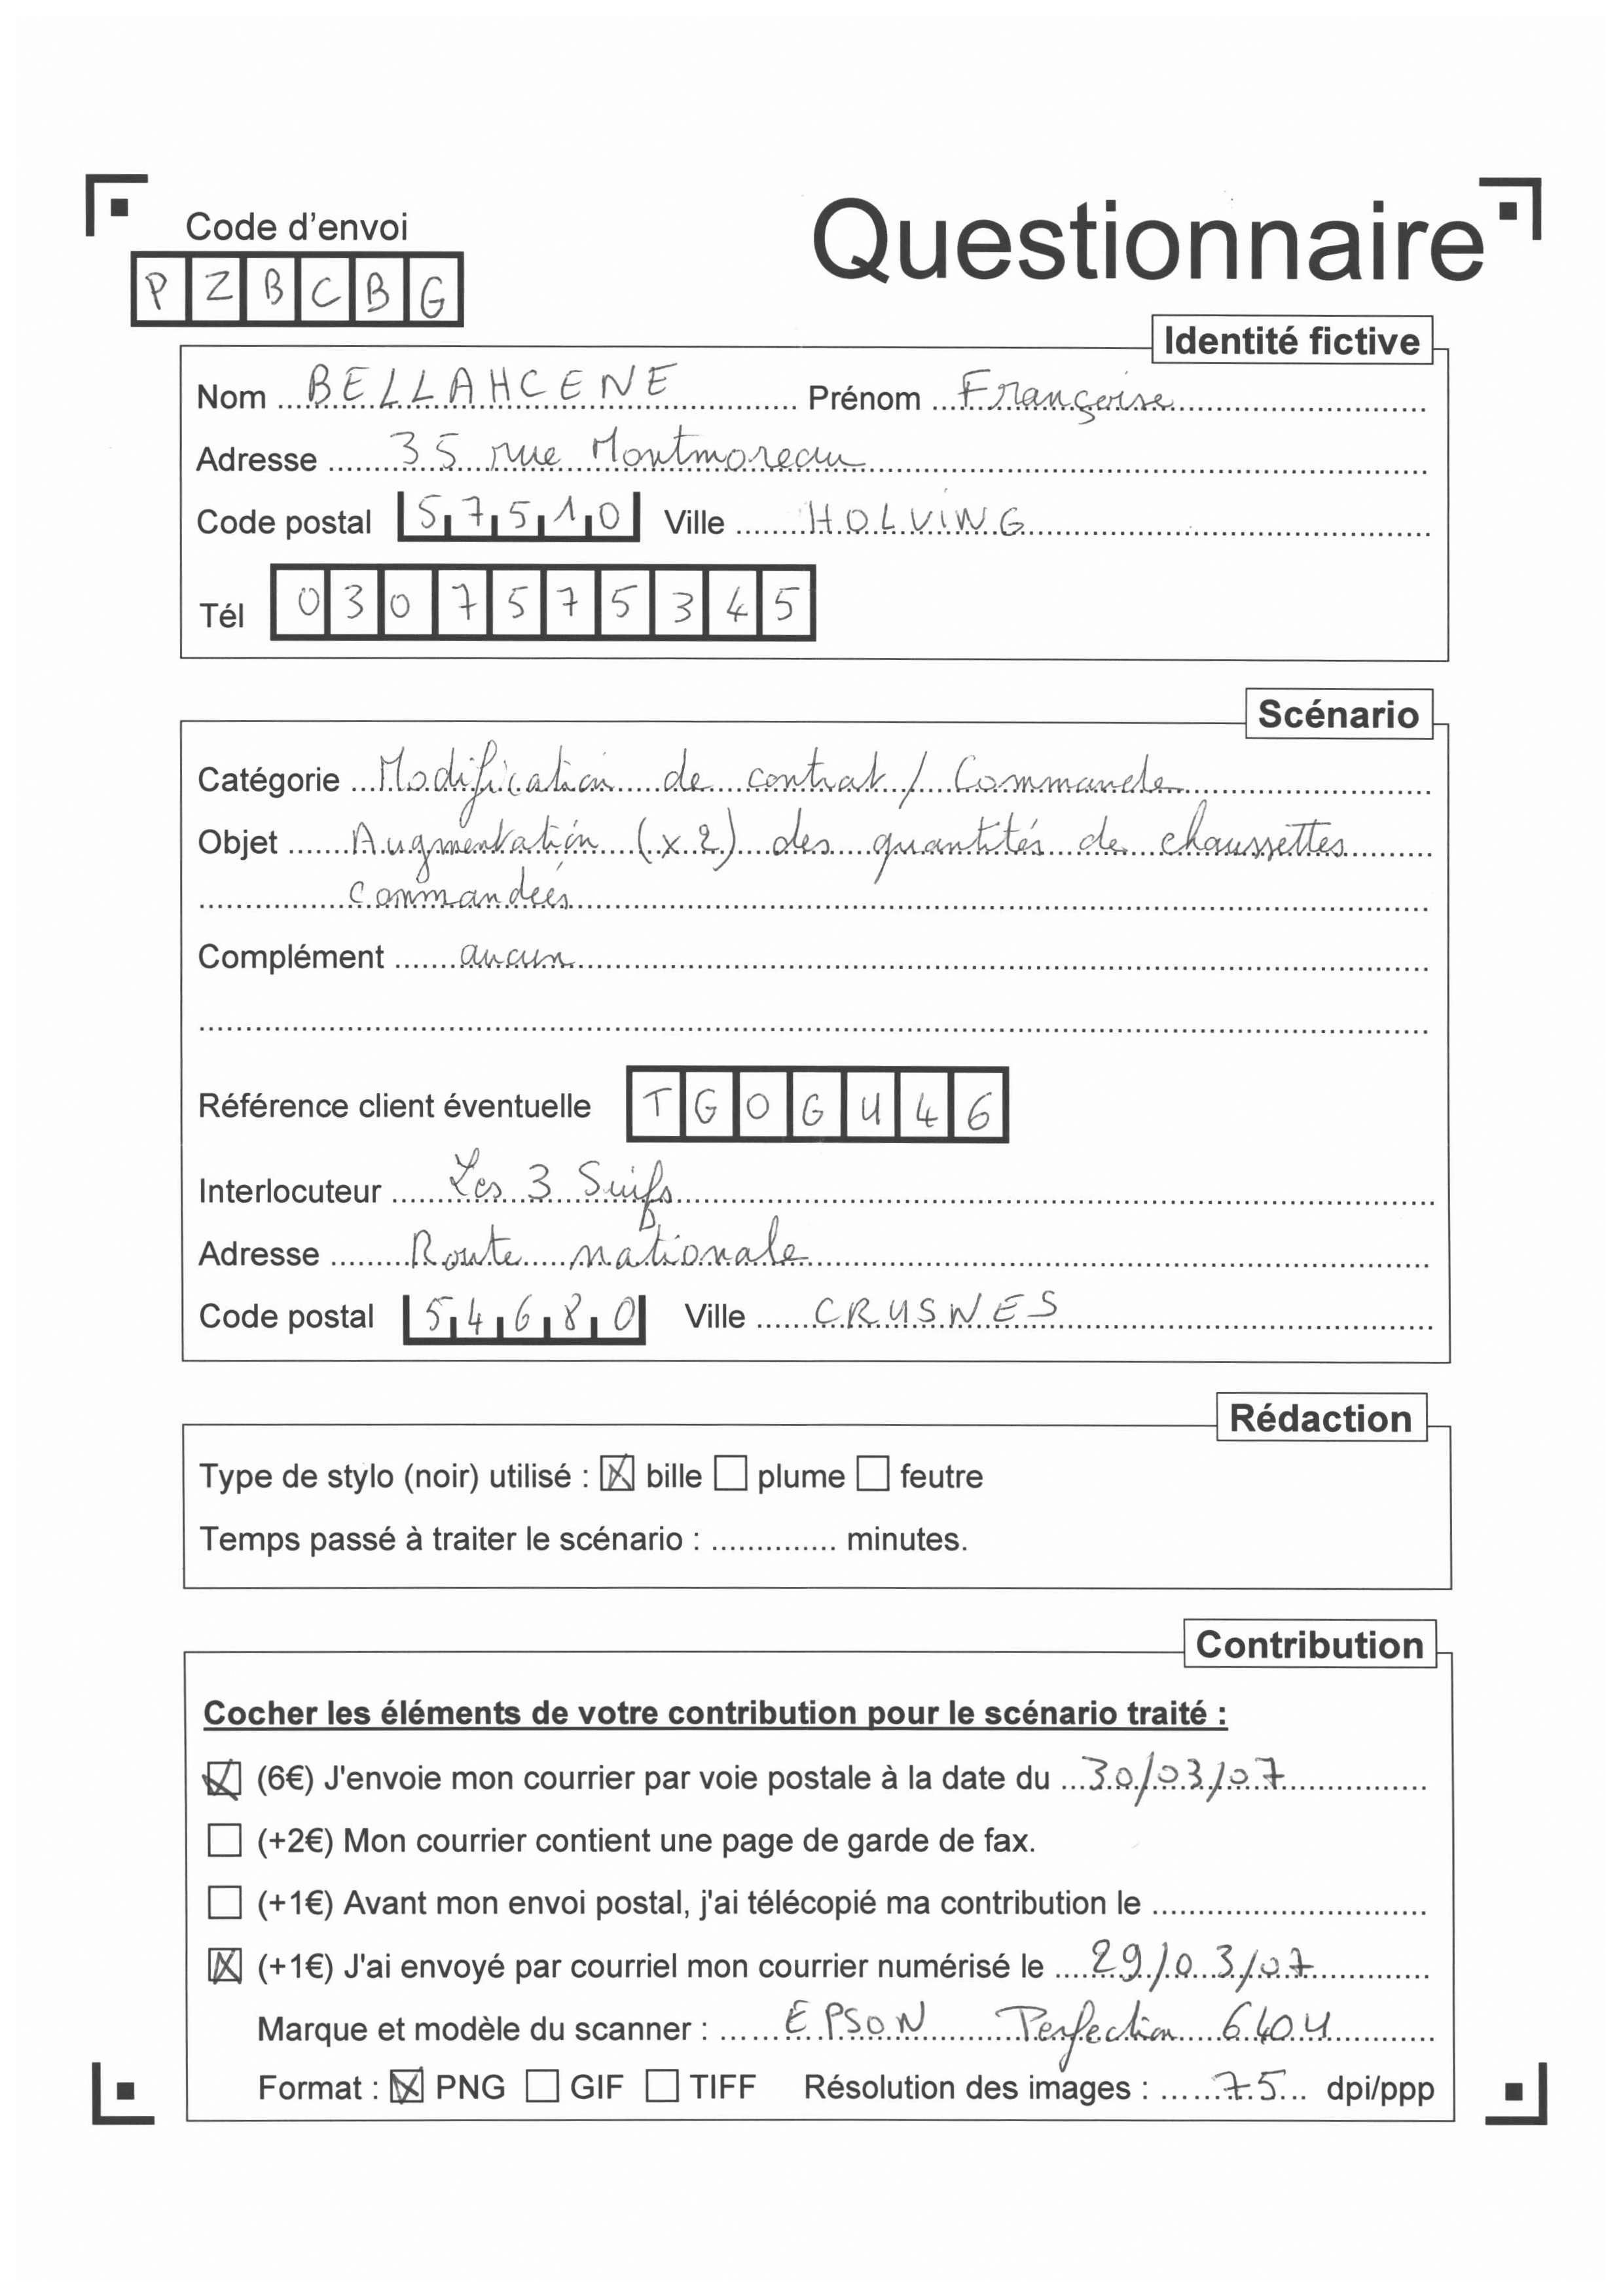 Code d'envoi
Questionnaire
PZBCBG
Identité fictive
Nom BELLAHCENE Prénom Françoise
Adresse 35 rue Montmoreau
Code postal 57510 Ville HOLVING
Tél 0307575345
Scénario
Catégorie Modification de contrat / Commande
Objet Augmentation (x2) des quantités de chaussettes
commandées
Complément aucun
Référence client éventuelle TGOGU46
Interlocuteur Les 3 Suifs
Adresse Route nationale
Code postal 54680 Ville CRUSNES
Rédaction
Type de stylo (noir) utilisé : ☒ bille ☐ plume ☐ feutre
Temps passé à traiter le scénario : .............. minutes.
Contribution
Cocher les éléments de votre contribution pour le scénario traité :
☒ (6€) J'envoie mon courrier par voie postale à la date du 30/03/07
☐ (+2€) Mon courrier contient une page de garde de fax.
☐ (+1€) Avant mon envoi postal, j'ai télécopié ma contribution le
☒ (+1€) J'ai envoyé par courriel mon courrier numérisé le 29/03/07
Marque et modèle du scanner : EPSON Perfection 640U
Format : ☒ PNG ☐ GIF ☐ TIFF Résolution des images : 75 dpi/ppp